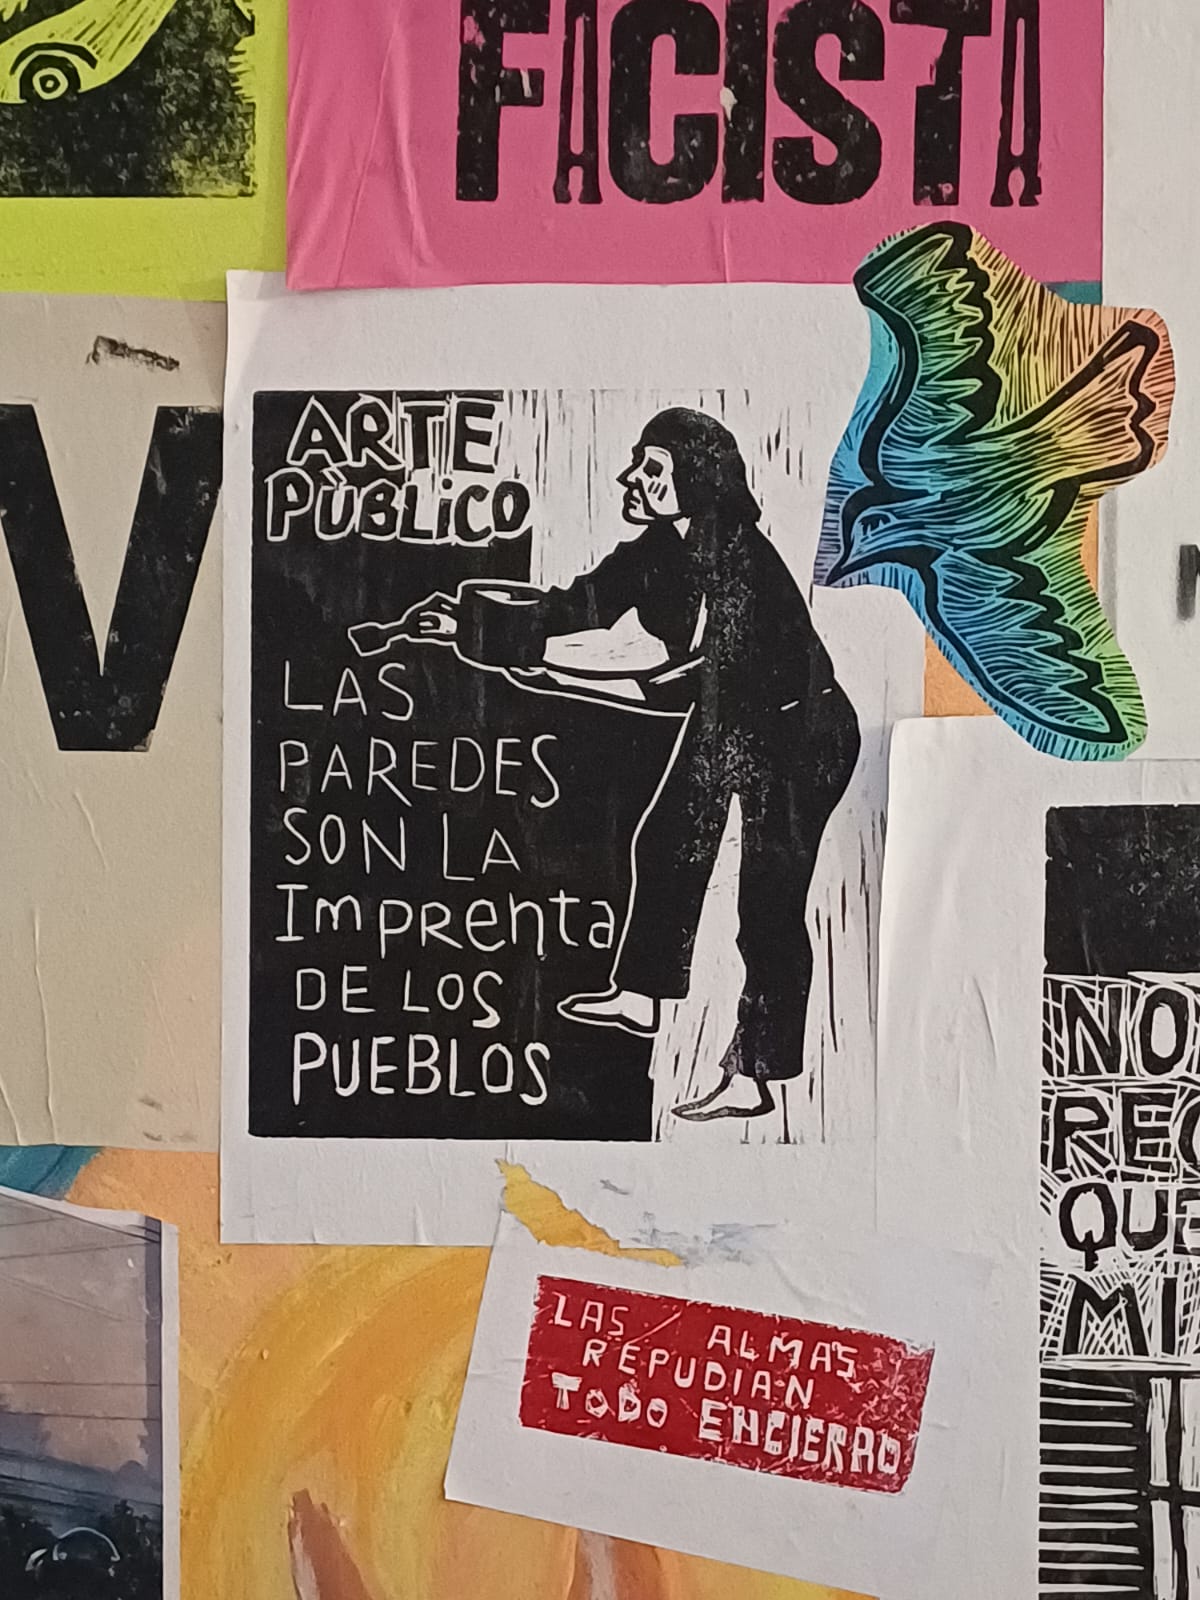 FACISTA
V
ARTE
PÙBLiCO
LAS
PAREDES
SON LA
Imprenta
DE LOS
PUEBLOS
LAS ALMAS
REPUDIAN
TODO ENCIERRO
NO
REC
QUE
MI